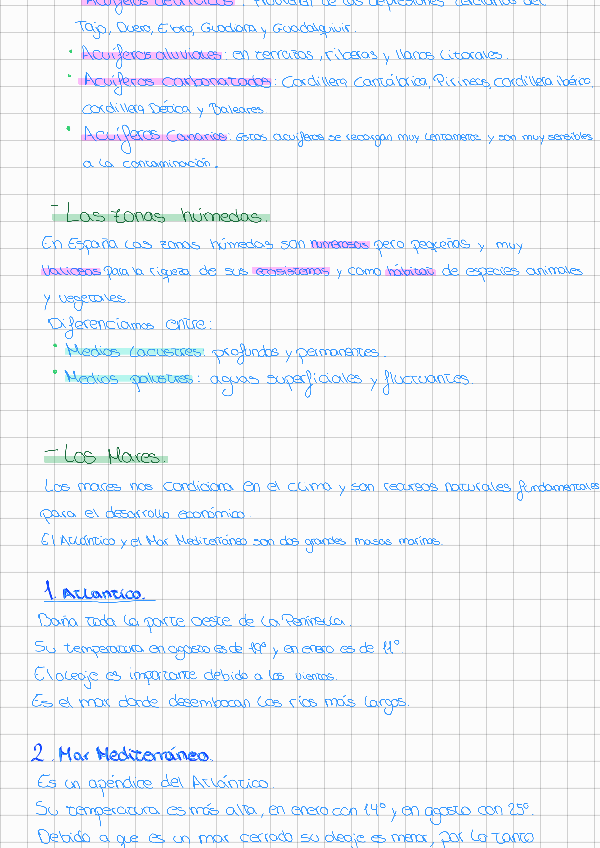 Acuíferos detríticos: proceden de las depresiones terciarias del
Tajo, Duero, Ebro, Guadiana y Guadalquivir.
· Acuíferos aluviales: en terrazas, riberas y llanos litorales.
· Acuíferos carbonatados: Cordillera Cantábrica, Pirineos, cordillera ibérica,
cordillera Bética y Baleares.
· Acuíferos canarios: Estos acuíferos se recargan muy lentamente y son muy sensibles
a la contaminación.
- Las zonas húmedas.
En España las zonas húmedas son numerosas pero pequeñas y muy
valiosas para la riqueza de sus ecosistemas y como hábitat de especies animales
y vegetales.
Diferenciamos entre:
· Medios lacustres: profundos y permanentes.
· Medios palustres: aguas superficiales y fluctuantes.
- Los Mares.
Los mares nos condiciona en el clima y son recursos naturales fundamentales
para el desarrollo económico
El Atlántico y el Mar Mediterráneo son dos grandes masas marinas.
1. Atlántico.
Baña toda la parte oeste de la Península.
Su temperatura en agosto es de 19º y en enero es de 11º
El oleaje es importante debido a los vientos.
Es el mar donde desembocan los ríos más largos.
2. Mar Mediterráneo.
Es un apéndice del Atlántico.
Su temperatura es más alta, en enero con 14º y en agosto con 25º.
Debido a que es un mar cerrado su oleaje es menor, por lo tanto